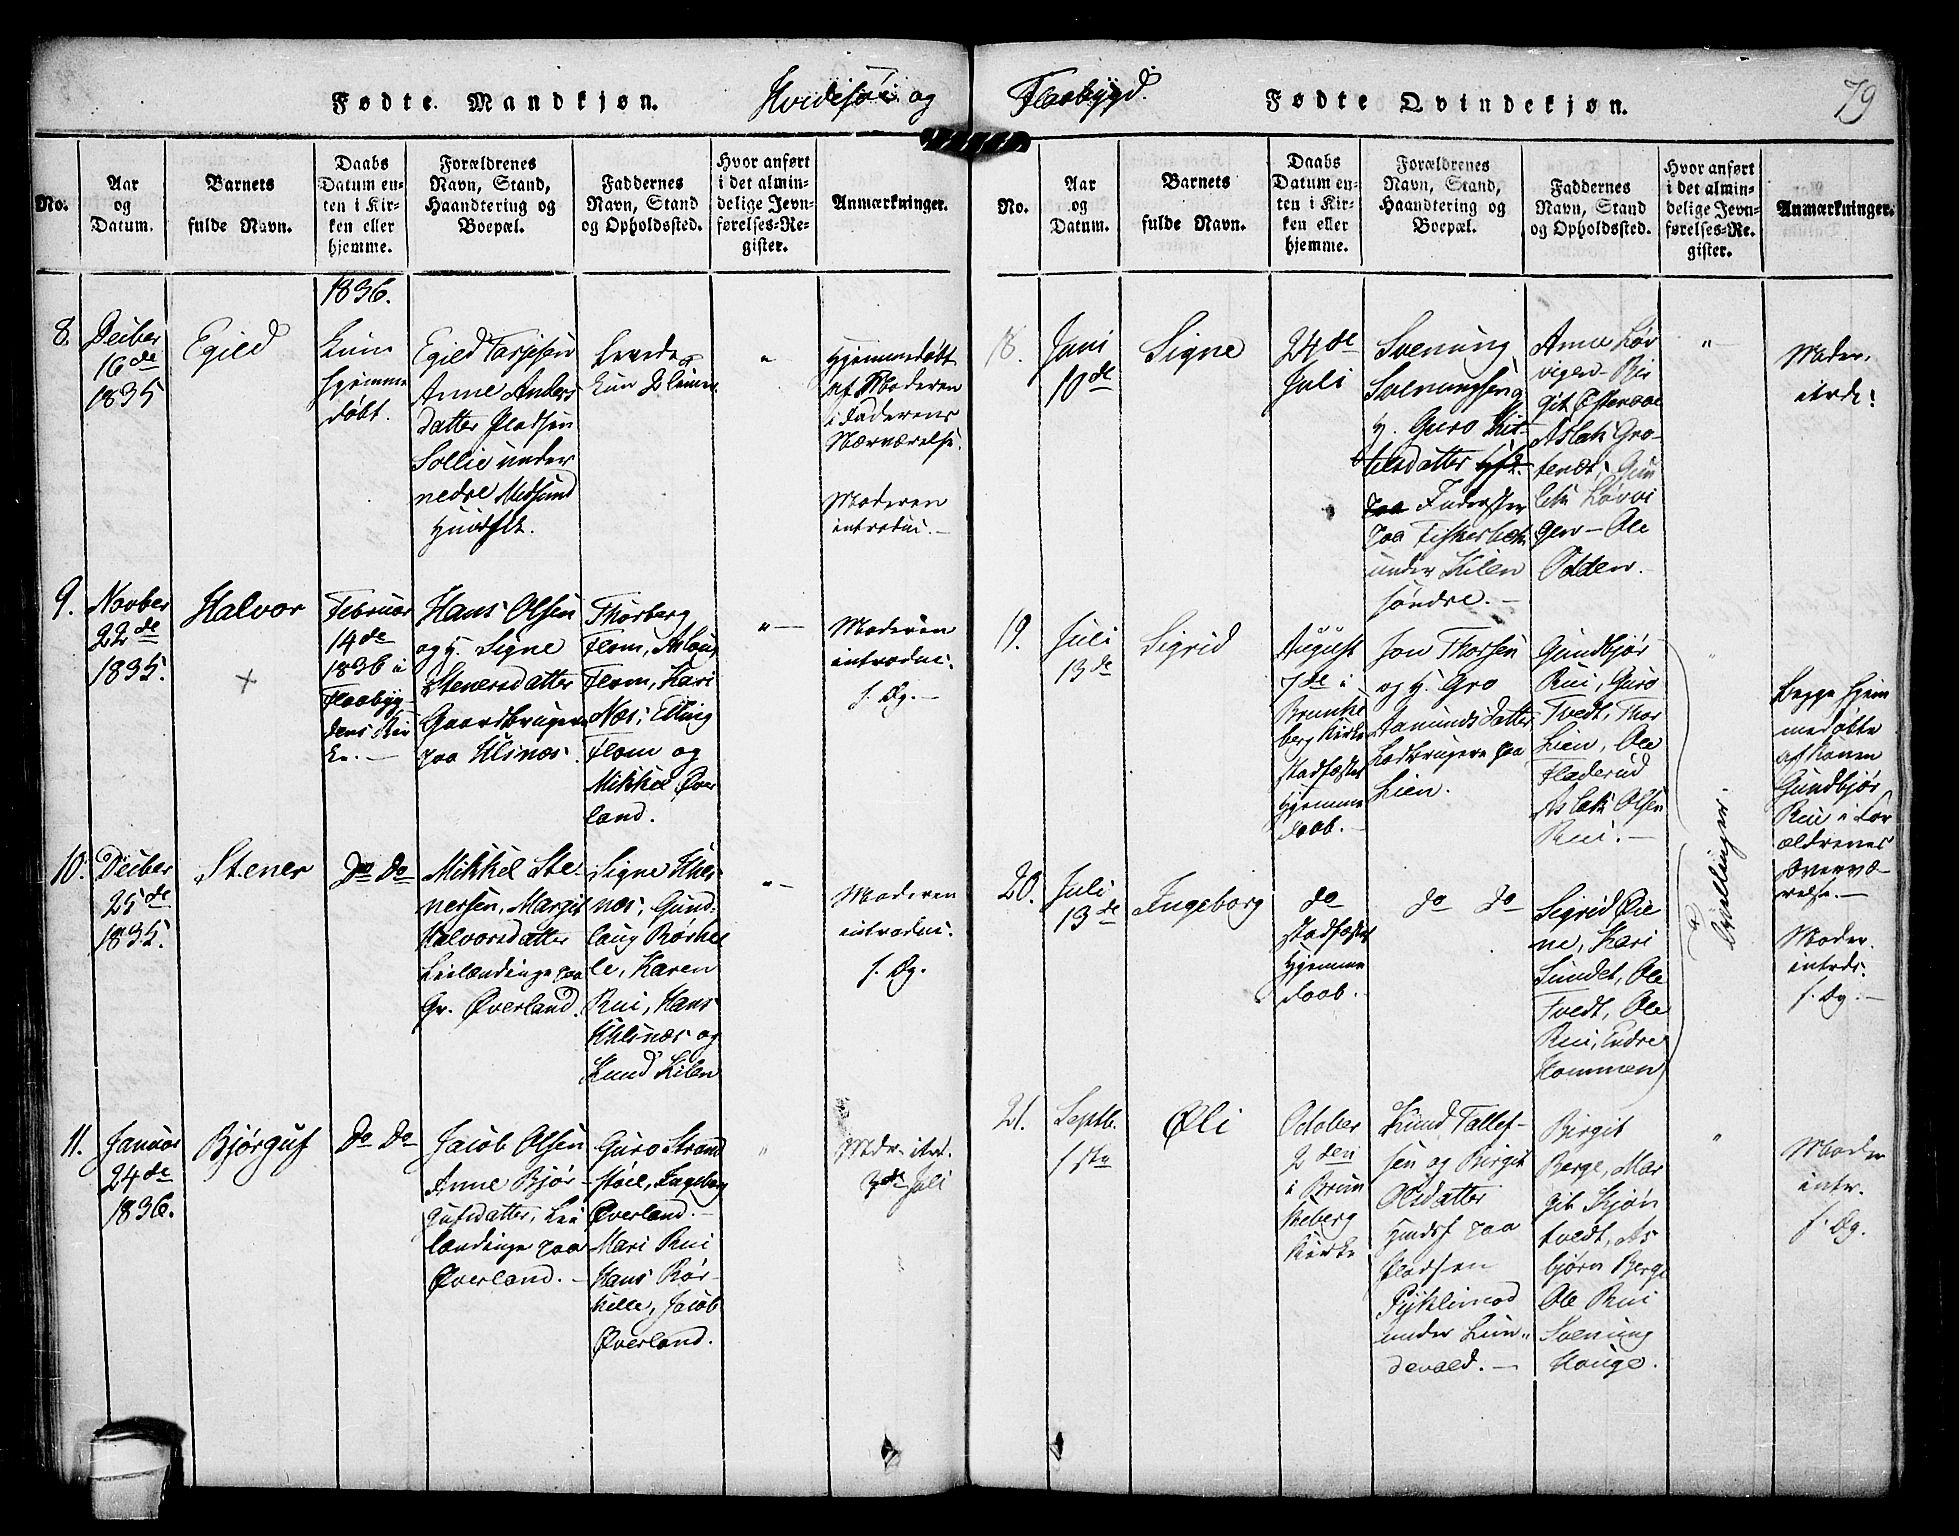 Hvidesøe og Flaabygd.
79
Fødte Mandkjøn.
No.
Aar
og
Datum.
Barnets
fulde Navn.
Daabs
Datum en-
ten i Kir-
ken eller
hjemme.
Forældrenes
Navn, Stand,
Haandtering og
Boepæl.
Faddernes
Navn, Stand
og Opholdssted.
Hvor anført
i det almin-
delige Jevn-
førelses-Re-
gister.
Anmærkninger.
8.
Decber
16de
1835
Egild
1836.
hjemme
døbt.
Egild Tarjesen
Anne Anders
datter Pladsen
Sollie under
nedre Midsund
Huusfk.
Levede
kun 2 Timer
"
Hjemmedøbt
af Moderen
i Faderens
Nærværelse.
Moderen
introduc.
9.
Novber
22de
1835.
Halvor
+
Februar
14de
1836 i
Flaabyg-
dens Kir
ke.
Hans Olsen
og H. Signe
Stenersdatter
Gaardbrugere
paa
Thorberg
Flom, Aslaug
Flom, Kari
Næs, Elling
Flom og
Mikkel Øver
land.
"
Moderen
introduc.
f. Æg.
10.
Decber
25de
1835.
Stener
do do
Mikkel Ste-
nersen, Margit
Halvorsdatter
Leilændinge paa
Gr. Øverland.
Signe
næs, Gund-
laug Rørhel
le, Karen
Rui, Hans
og
Knud Kilen
"
Moderen
introduc.
f. Æg.
11.
Januar
24de
1836.
Bjørguf
do do
Jacob Olsen
Anne Bjør-
gufsdatter, Lei
lændinge paa
Øverland.
Guro Strand
støil, Ingeborg
Øverland.
Mari Rui
Hans Rør-
helle, Jacob
Øverland.
"
Modr. itrd.
3de Juli
Fødte Qvindekjøn.
No.
Aar
og
Datum.
Barnets
fulde Navn.
Daabs
Datum en-
ten i Kir-
ken eller
hjemme.
Forældrenes
Navn, Stand,
Haandtering og
Boepæl.
Faddernes
Navn, Stand
og Opholdssted.
Hvor anført
i det almin-
delige Jevn-
førelses-Re-
gister.
Anmærkninger.
18.
Juni
10de
Signe
24de
Juli
Svenung
Svenungsen og
H. Guro Kit-
tilsdatter
paa
paa Fiskerbæk
under Kilen
søndre.
Anne Løv
vigen - Bir
git
Aslak Gro-
tenæt, Gun
leik Løvvi
gen - Ole
Odden.
"
Moder.
itrdc!
19.
Juli
13de
Sigrid
August
7de i
Brunke
berg Kirke
stadfæstet
Hjemme
daab.
Jon Thorsen
og H. Gro
Aamundsdatter
paa
Lien.
Gundbjør
Rui, Guro
Tvedt, Thor
Lien, Ole
Fladerud
Aslak Olsen
Rui.
"
Tvillinger.
Begge hjem
medøbte
af Konen
Gundbjør
Rui i For
ældrenes
Overvæ-
relse.
20.
Juli
13de
Ingeborg
do
stadfæstet
Hjemme
daab.
do do
Sigrid Øie
ne, Kari
Sundet, Ole
Tvedt, Ole
Rui, Endre
Hommen
Moder.
introdc.
f. Æg.
21.
Septb.
1ste
Øli
October
2den
i Brun
keberg
Kirke
Knud Tallef-
sen og Birgit
Olsdatter
Huusf paa
Pladsen
under Lun-
devald.
Birgit
Berge, Mar
git Kjøn
tvedt, As
bjørn Berge
Ole Rui
Svenung
Hauge.
"
Moder
intr.
f. Æg.